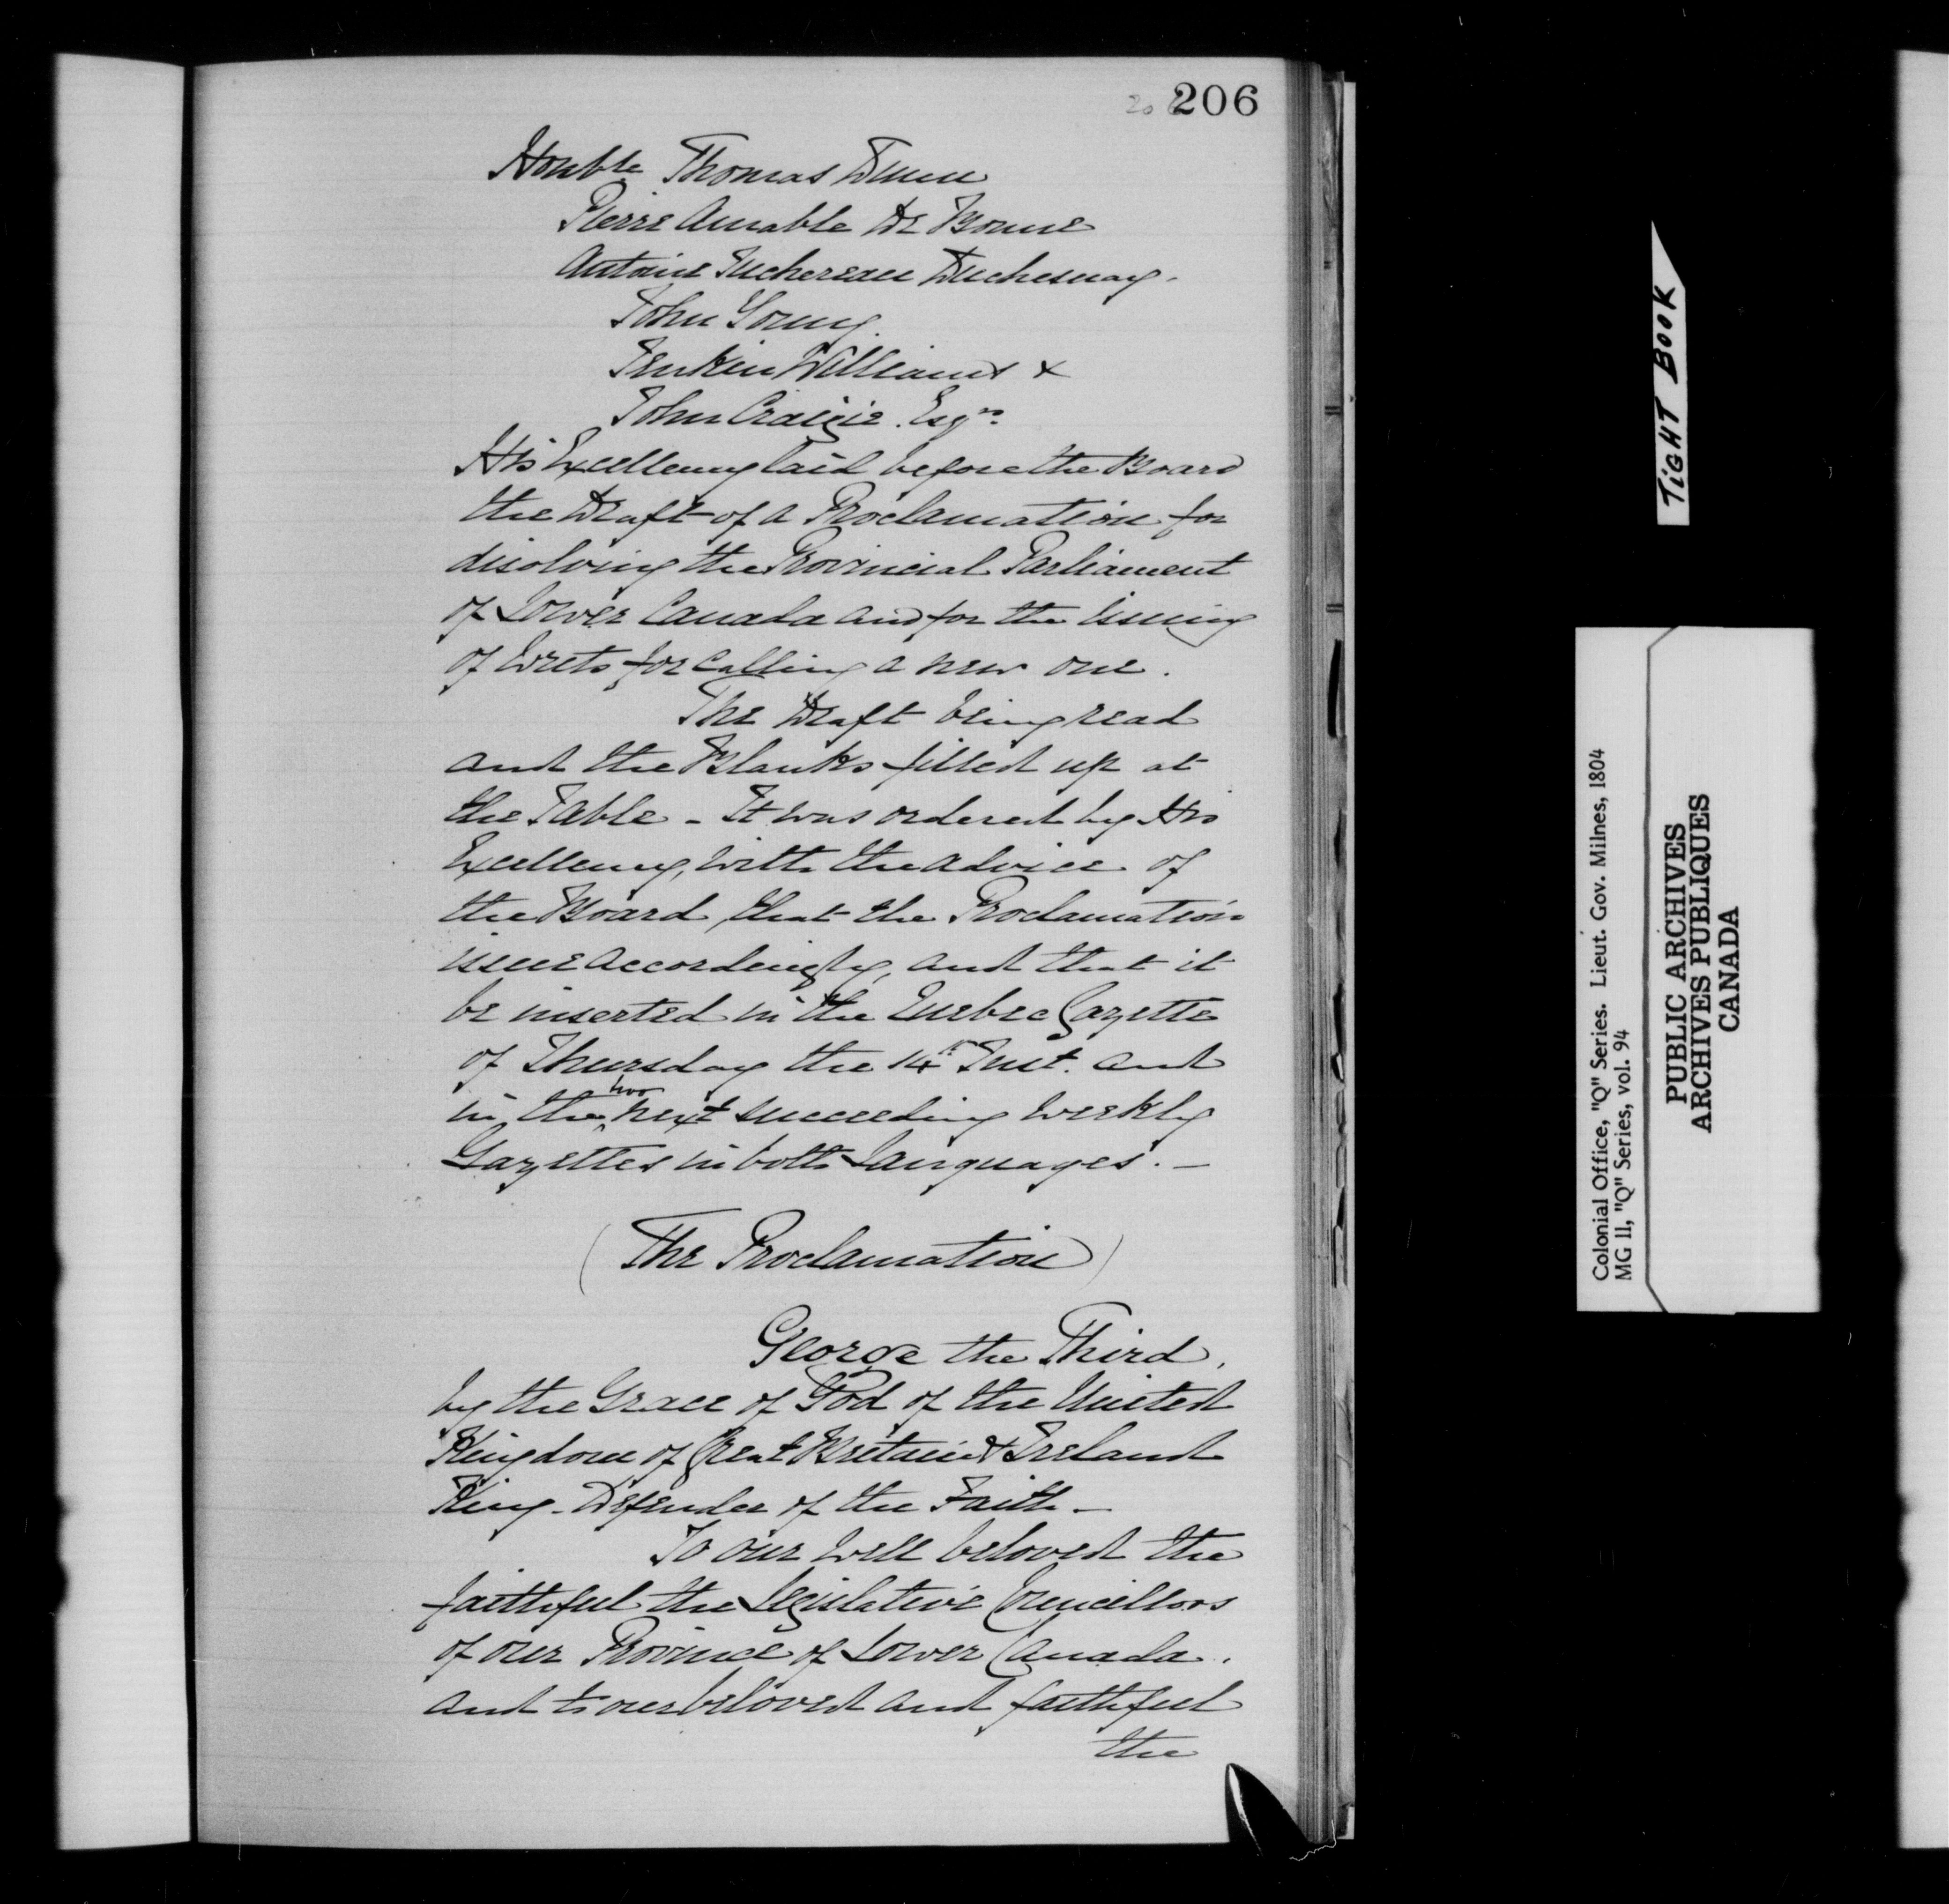 206
Honble Thomas Dunn
Pierre Amable De Bonne
Antoine Juchereau Duchesnay.
John Young.
Jenkin Williams &
John Craigie. Esqrs.
His Excellency laid before the Board
the Draft of a Proclamation for
disolving the Provincial Parliament
of Lower Canada and for the issuing
of Writs for calling a new one.
The Draft being read
and the Blanks filled up at
the Table - It was ordered by His
Excellency, with the advice of
the Board, that the Proclamation
issue accordingly, and that it
be inserted in the Quebec Gazette
of Thursday the 14th Inst. and
in the two next succeeding weekly
Gazettes in both Languages. -
(The Proclamation)
George the Third,
by the Grace of God of the United
Kingdom of Great Britain & Ireland
King - Defender of the Faith -
To our well beloved the
faithful the Legislative Councillors
of our Province of Lower Canada,
and to our beloved and faithful
the
TIGHT BOOK
Colonial Office, "Q" Series. Lieut. Gov. Milnes, 1804
MG 11, "Q" Series, vol. 94
PUBLIC ARCHIVES
ARCHIVES PUBLIQUES
CANADA